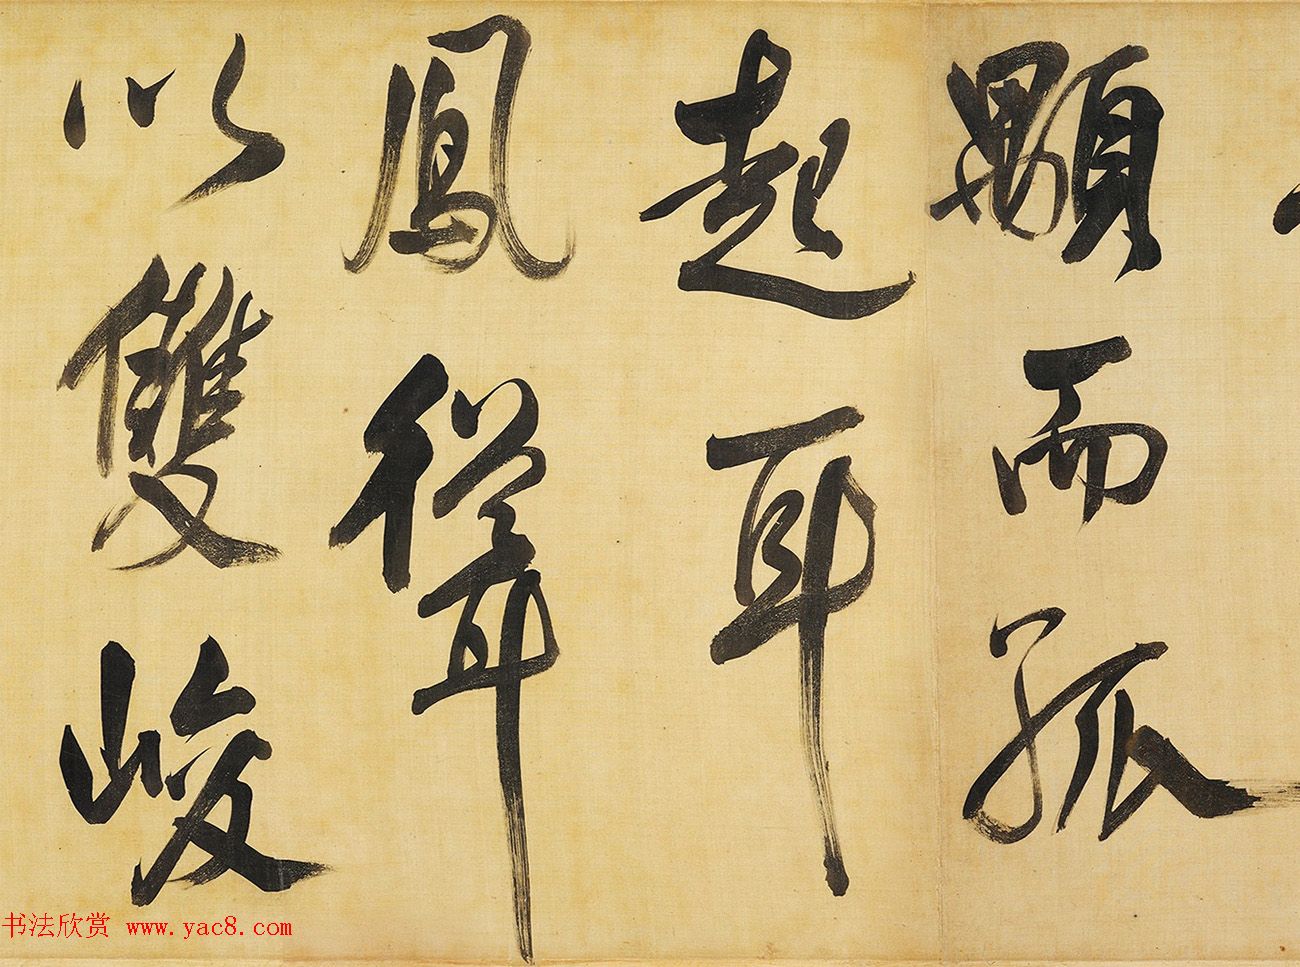 顒而孤
起耳
鳳聳
以雙峻
书法欣赏 www.yac8.com